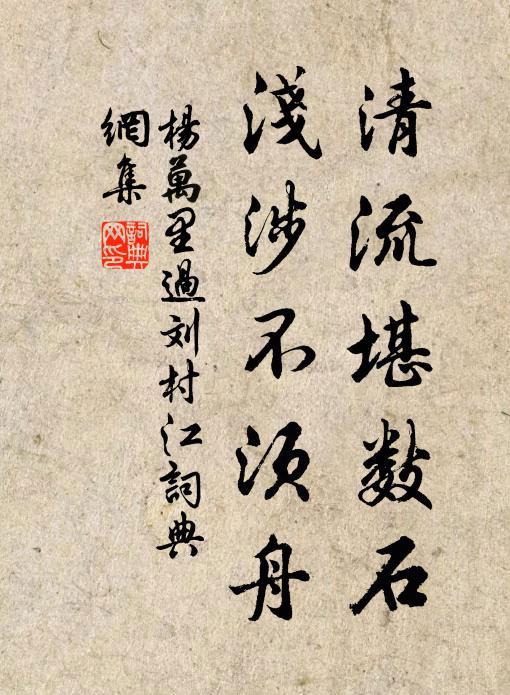 清流堪數石
淺涉不須舟
楊萬里過刘村江詞典
網集
詞典
网印